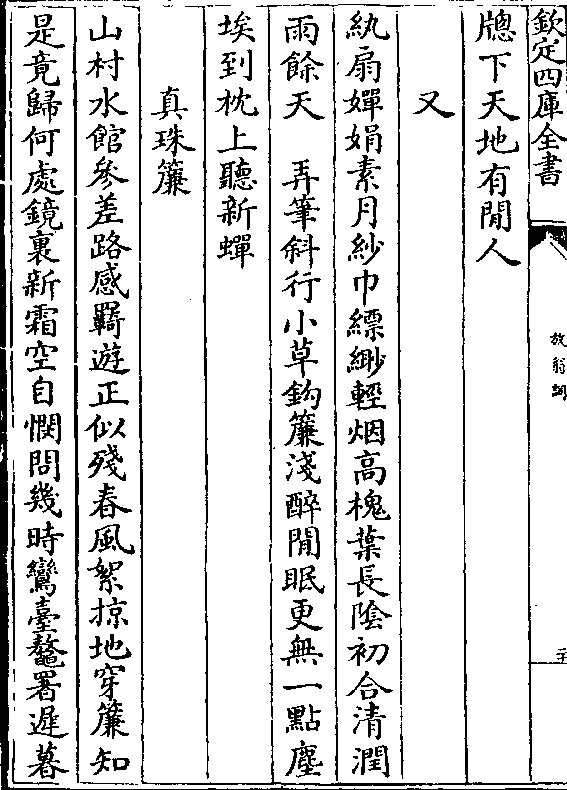 欽定四庫全書
牕下天地有閒人
又
紈扇嬋娟素月紗巾縹緲輕烟高槐葉長陰初合清潤
雨餘天　弄筆斜行小草鈎簾淺醉閒眠更無一點塵
埃到枕上聽新蟬
真珠簾
山村水館參差路感羇遊正似殘春風絮掠地穿簾知
是竟歸何處鏡裏新霜空自憫問幾時鸞臺鼇署遲暮
放翁詞